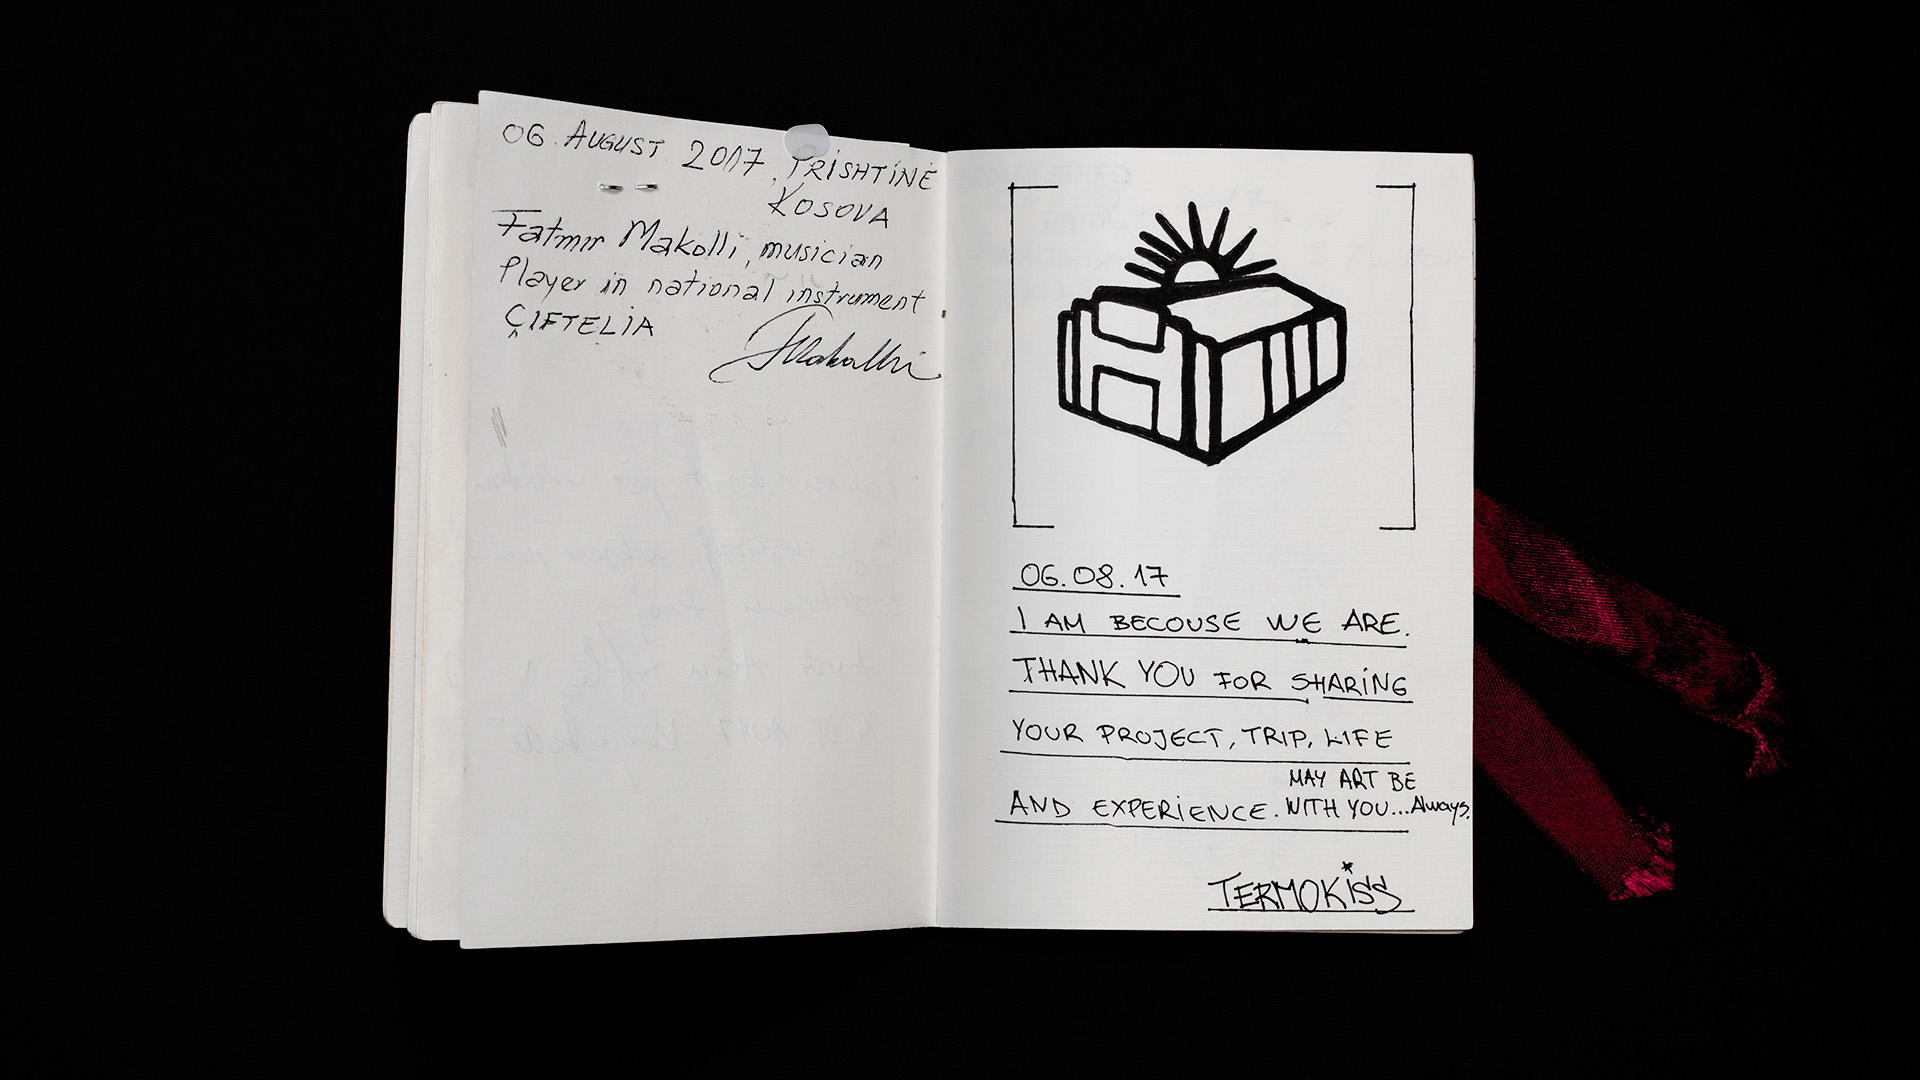 06 AUGUST 2017, PRISHTINË
KOSOVA
Fatmir Makolli, musician
Player in national instrument
ÇIFTELIA
06.08.17
I AM BECOUSE WE ARE.
THANK YOU FOR SHARING
YOUR PROJECT, TRIP, LIFE
MAY ART BE
AND EXPERIENCE. WITH YOU...Always.
TERMOKISS